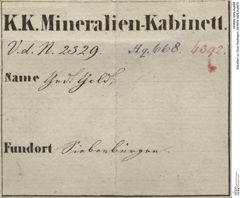 K.K.Mineralien-Kabinett.
V. d. N. 2329. Aq. 668. 4392.
Name Ged. Gold,
Fundort Siebenbürgen.